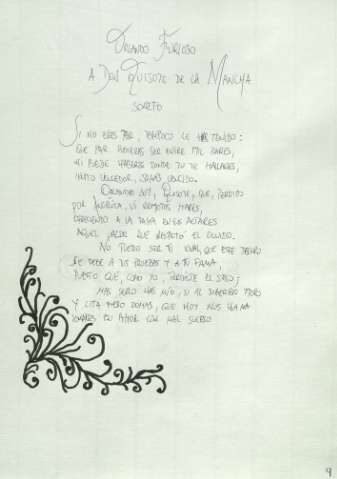 Orlando Furioso
A Don Quijote de la Mancha
Soneto
Si no eres par, tampoco le has tenido:
que par pudieras ser entre mil pares,
ni puede haberle donde tú te hallares,
invito vencedor, jamás vencido.
Orlando soy, Quijote, que, perdido
por Angélica, vi remotos mares,
ofreciendo a la Fama en sus altares
aquel valor que respetó el olvido.
No puedo ser tu igual, que este decoro
se debe a tus proezas y a tu fama,
puesto que, como yo, perdiste el seso;
mas serlo has mío, si al soberbio moro
y cita fiero domas, que hoy nos llama
iguales en amor con mal suceso
9